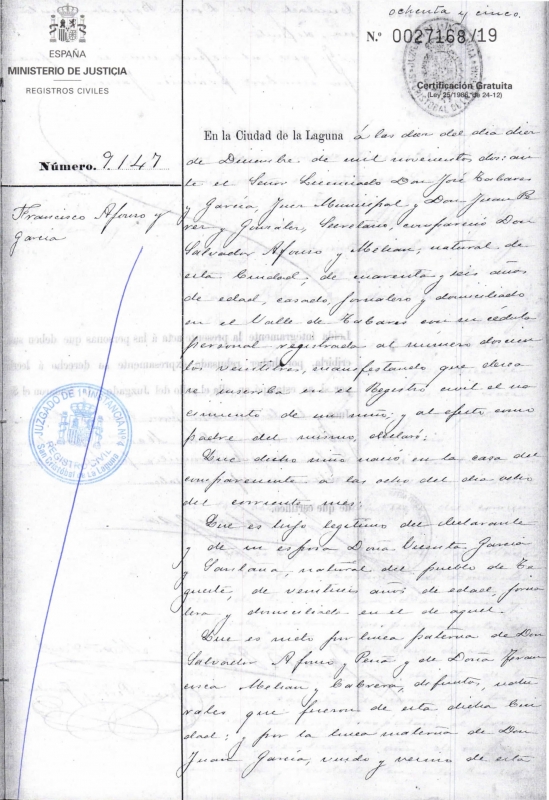 ochenta y cinco.
N.º 0027168/19
ESPAÑA
MINISTERIO DE JUSTICIA
REGISTROS CIVILES
Certificación Gratuita
(Ley 25/1986, de 24-12)
Número. 9.147
Francisco Afonso y
García
JUZGADO DE 1ª INSTANCIA Nº 4
REGISTRO CIVIL
San Cristóbal de La Laguna
En la Ciudad de la Laguna á las dos del dia diez
de Diciembre de mil novecientos dos: an
te el Señor Licenciado Don José Tabares
y García, Juez Municipal y Don Juan Pe
rez y González, Secretario, compareció Don
Salvador Afonso y Melian, natural de
esta Ciudad, de cuarenta y seis años
de edad, casado, jornalero y domiciliado
en el Valle de Tabares con su cédula
personal registrada al número doscien
tos veintitres, manifestando que desea
se inscriba en el Registro civil el na
cimiento de un niño; y al efecto como
padre del mismo, declaró:
Que dicho niño nació en la casa del
compareciente á las ocho del dia ocho
del corriente mes:
Que es hijo legítimo del declarante
y de su esposa Doña García
y Santana, natural del pueblo de Te
gueste, de años de edad, jorna
lera y domiciliada en el de aquel.
Que es nieto por línea paterna de Don
Salvador Afonso y Peña y de Doña Fran
cisca Melian y Cabrera, difuntos, natu
rales que fueron de esta dicha Ciu
dad: y por la línea materna de Don
Juan García, viudo y vecino de esta